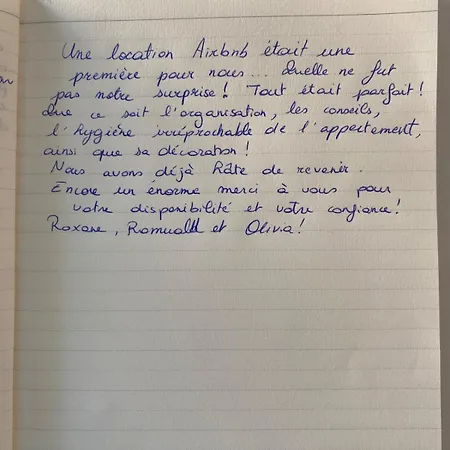 Une location Airbnb était une
première pour nous... Quelle ne fut
pas notre surprise! Tout était parfait!
Que ce soit l'organisation, les conseils,
l'hygiène irréprochable de l'appartement,
ainsi que sa décoration!
Nous avons déjà hâte de revenir.
Encore un énorme merci à vous pour
votre disponibilité et votre confiance!
Roxane, Romuald et Olivia!